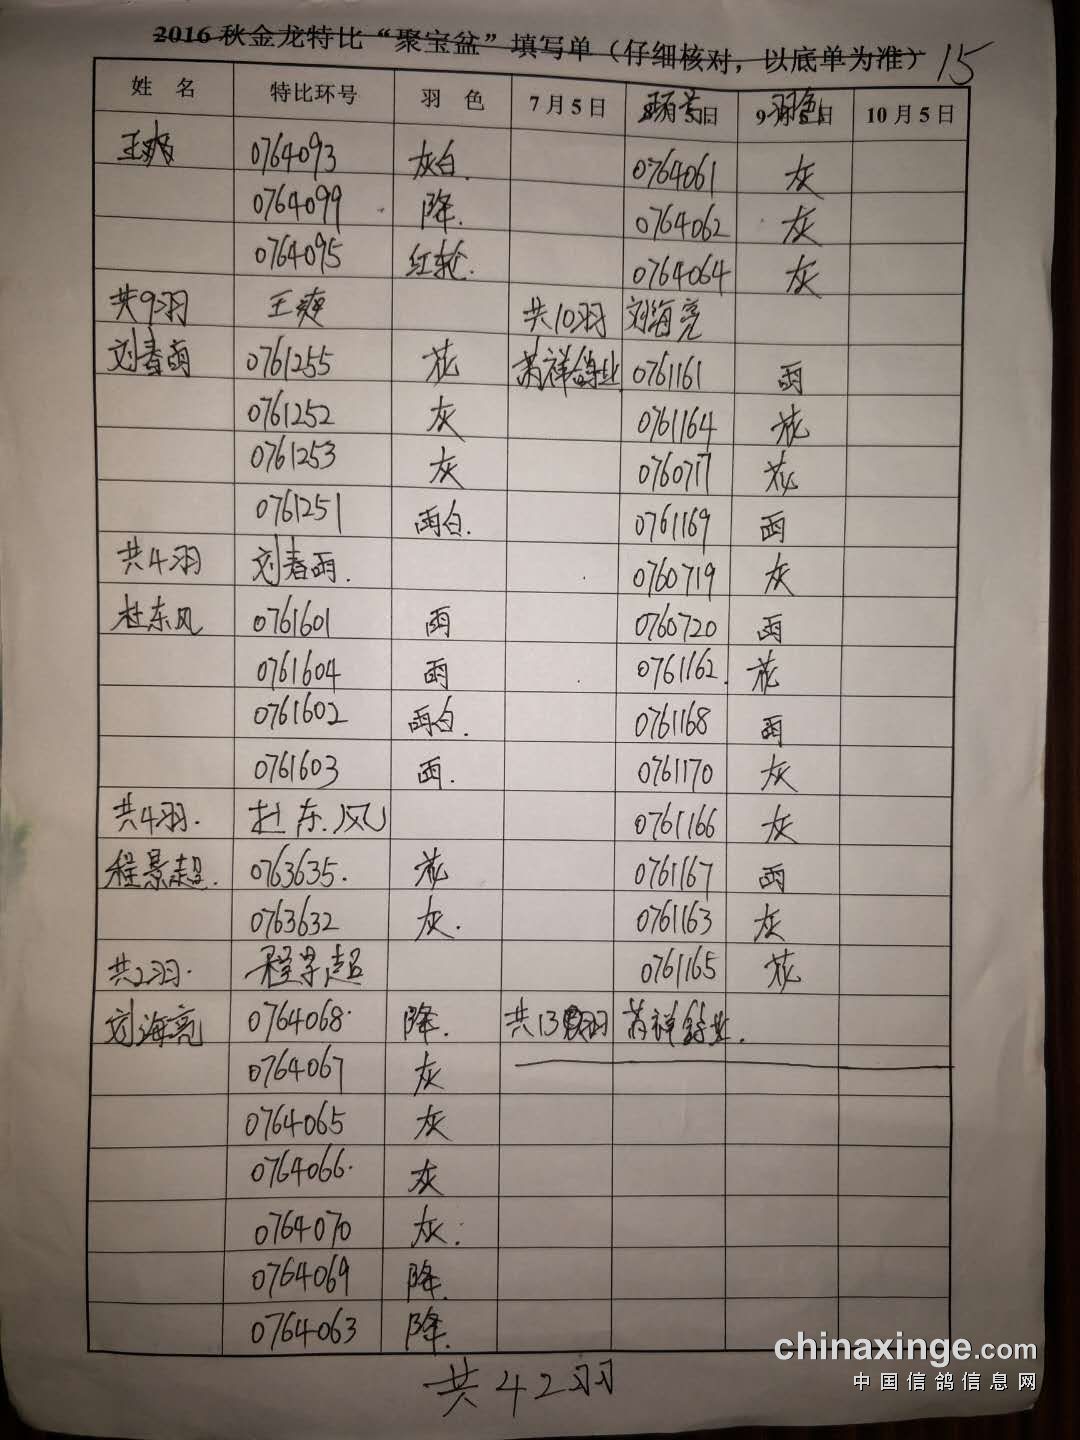 2016秋金龙特比“聚宝盆”填写单（仔细核对，以底单为准） 15
姓 名 特比环号 羽 色 7月5日 9月5日 羽色 10月5日
王爽 0764093 灰白. 0764061 灰
0764099 降. 0764062 灰
0764095 红轮. 0764064 灰
共9羽 王爽 共10羽 刘海亮
刘春雨 0761255 花 祥鸽业 0761161 雨
0761252 灰 0761164 花
0761253 灰 0760717 花
0761251 雨白. 0761169 雨
共4羽 刘春雨. 0760719 灰
杜东风 0761601 雨 0760720 雨
0761604 雨 0761162. 花
0761602 雨白. 0761168 雨
0761603 雨. 0761170 灰
共4羽. 杜东风 0761166 灰
程景超. 0763635. 花 0761167 雨
0763632 灰. 0761163 灰
共2羽. 程景超 0761165 花
刘海亮 0764068. 降. 共13羽 祥鸽业.
0764067 灰
0764065 灰
0764066. 灰
0764070 灰.
0764069 降.
0764063 降.
共42羽
chinaxinge.com
中国信鸽信息网